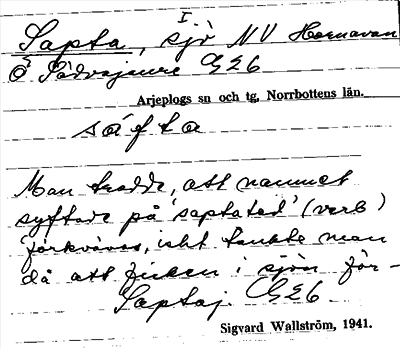 I.
Sapta, sjö NV Hornavan
Ö Sädvajaure GE6
Arjeplogs sn och tg, Norrbottens län.
sáfta
Man trodde, att namnet
syftade på 'saptatid' (verb)
'förkvävas, isht tänkte man
då att fisken i sjön för-
Saptaj. GE6.
Sigvard Wallström, 1941.